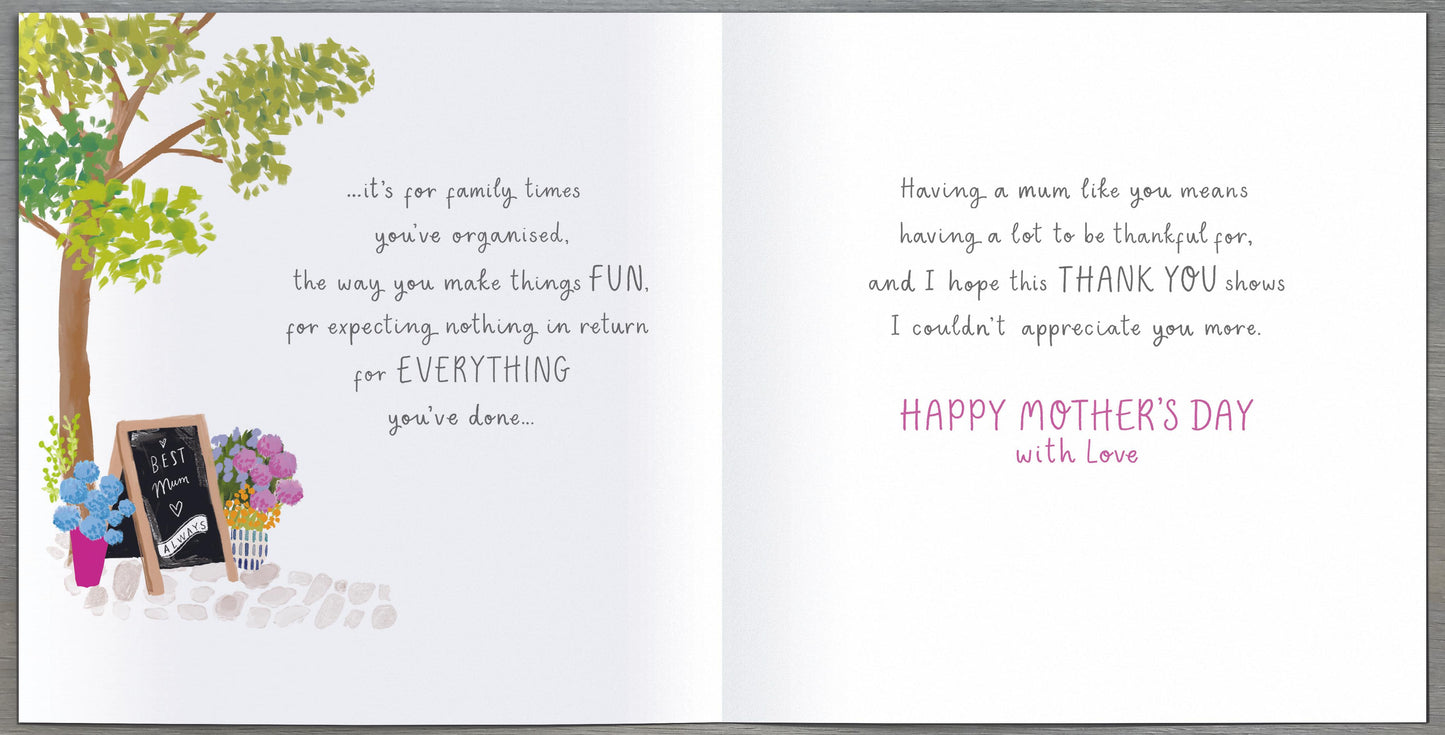 ...it's for family times
you've organised,
the way you make things FUN,
for expecting nothing in return
for EVERYTHING
you've done...
BEST
Mum
ALWAYS
Having a mum like you means
having a lot to be thankful for,
and I hope this THANK YOU shows
I couldn't appreciate you more.
HAPPY MOTHER'S DAY
with Love